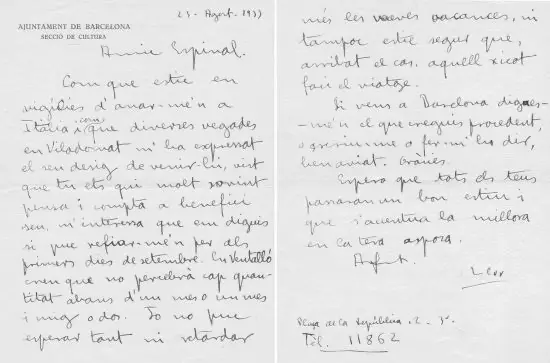 23 - Agost - 1933
AJUNTAMENT DE BARCELONA
SECCIÓ DE CULTURA
Amic Espinal.
Com que estic en
vigílies d'anar-me'n a
Itàlia i com que diverses vegades
en Viladomat m'ha expressat
el seu desig de venir-hi, vist
que tu ets qui molt sovint
pensa i compta a benefici
seu, m'interessa que em diguis
si puc refiar-me'n per als
primers dies de setembre. En Ventalló
creu que no percebrà cap quan-
titat abans d'un mes o un mes
i mig o dos. Jo no puc
esperar tant ni retardar
més les meves vacances, ni
tampoc estic segur que,
arribat el cas, aquell xicot
faci el viatge.
Si vens a Barcelona digues-
-me'n el que creguis procedent,
o escriu-me o fer-m'ho dir,
ben aviat. Gràcies.
Espero que tots els teus
passaran un bon estiu i
que s'accentua la millora
en la teva esposa.
Plaça de la República - 2 - 3r.
Tel. 11862